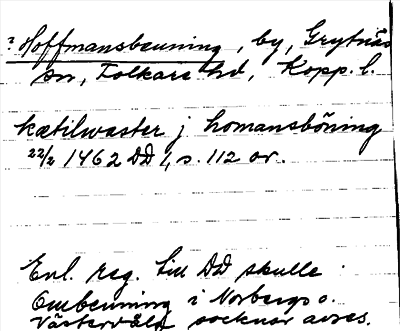 ? Hoffmansbenning, by, Grytnäs
sn, Folkare hd, Kopp. l.
kætilwaster j homansböning
22/2 1462 DD 1, s. 112 or.
Enl. reg. till DD skulle
Ombenning i Norbergs o.
Västervåla socknar avses.